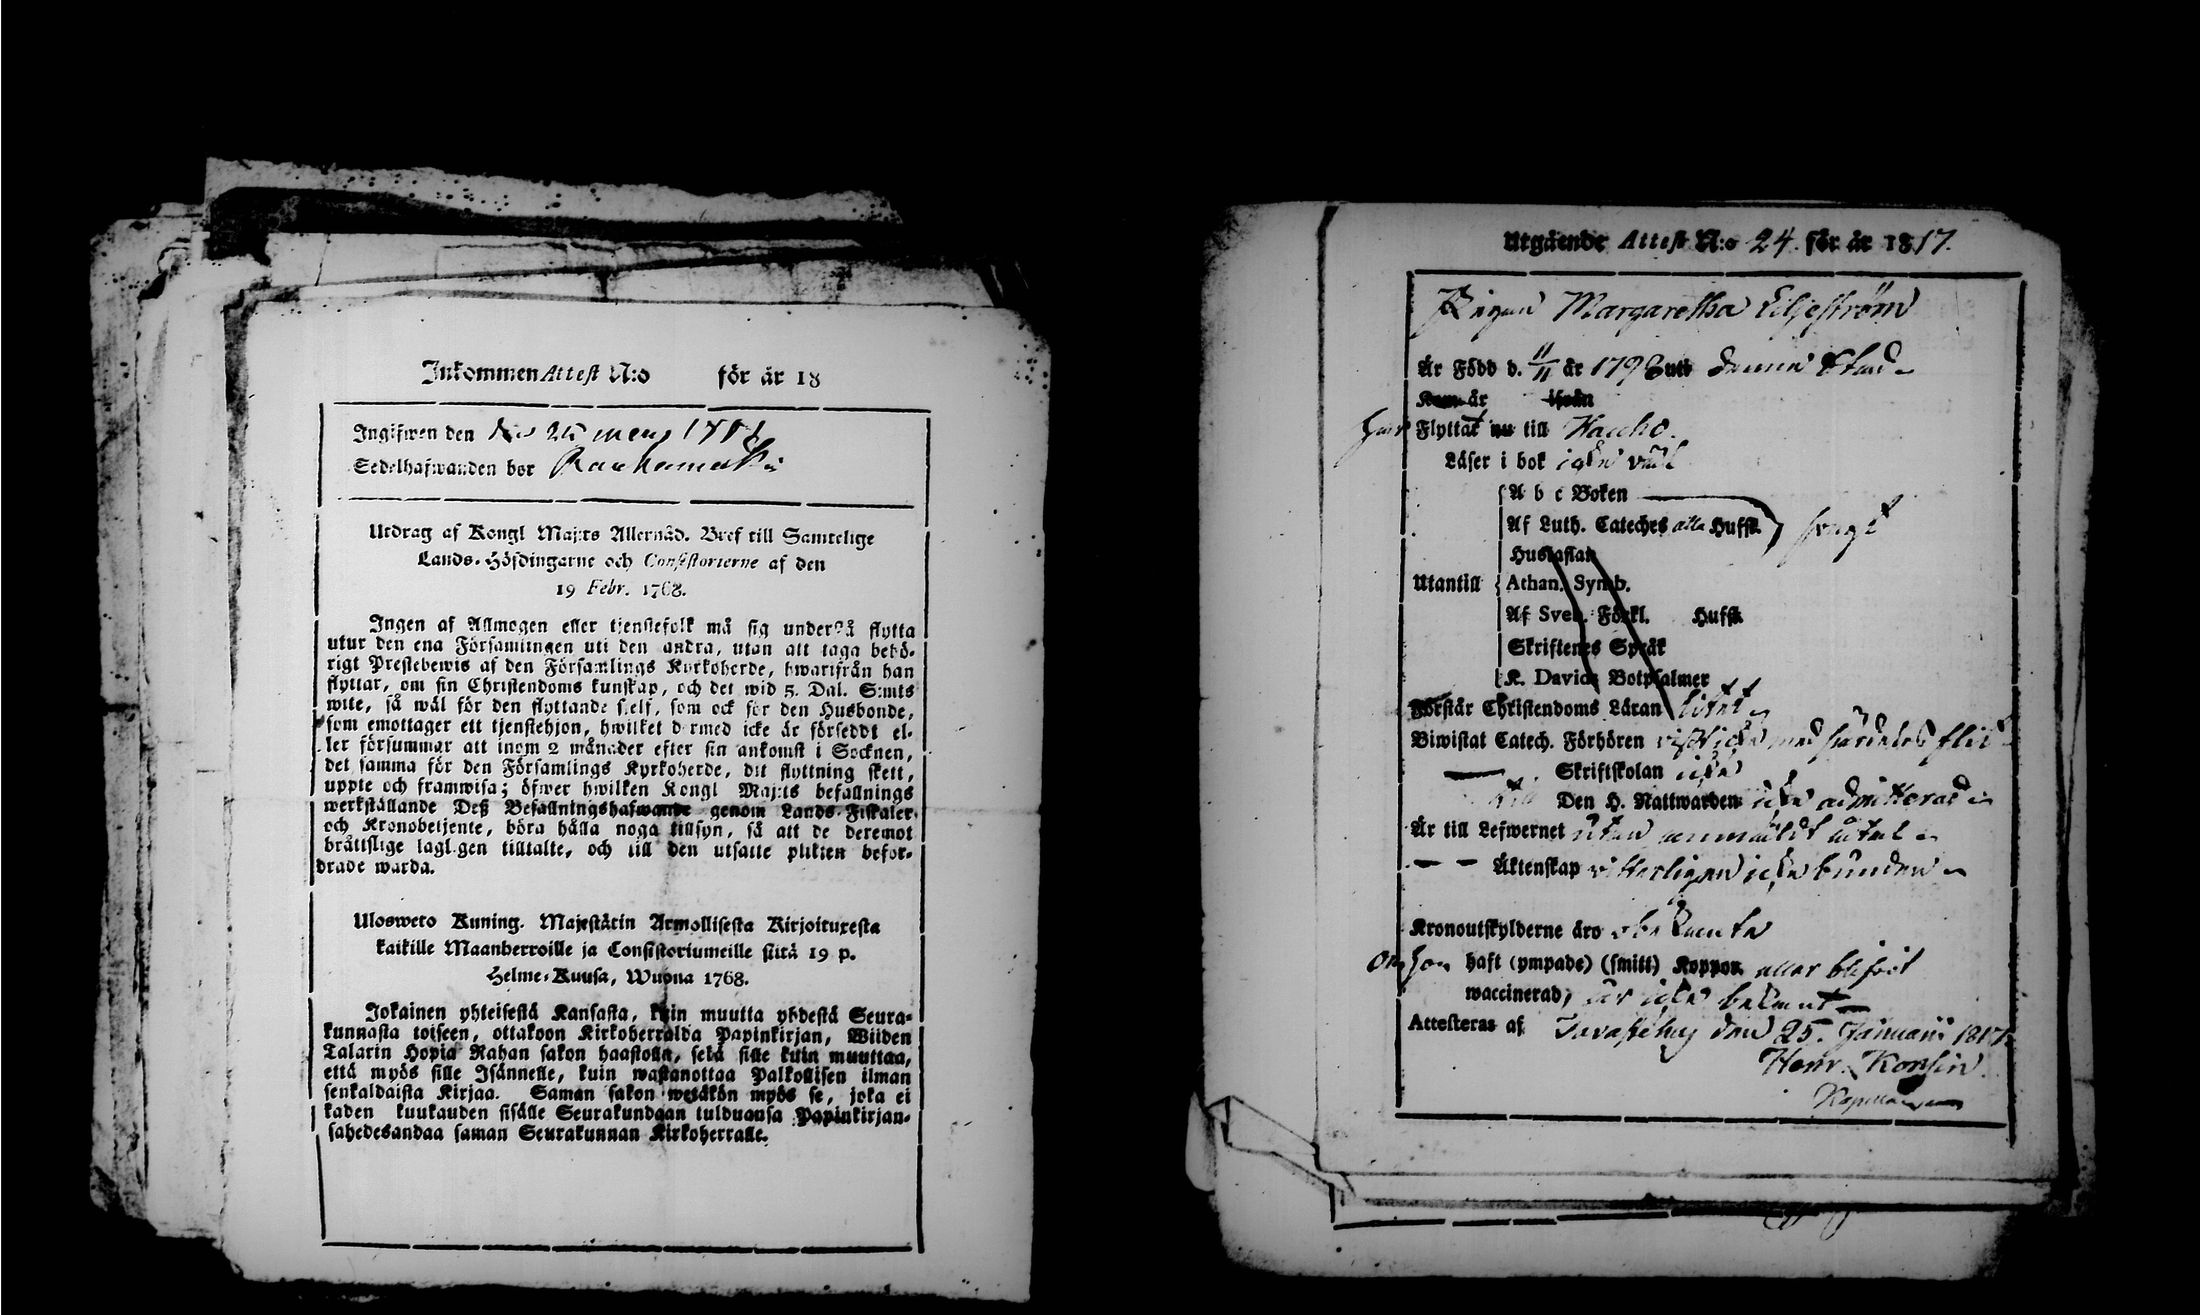 Inkommen Attest N:o för år 18
Ingifwen den den 25 mars
Sedelhafwanden bor
Utdrag af Kongl Maj:ts Allernåd. Bref till Samtelige
Lands-Höfdingarne och Consistorierne af den
19 Febr. 1768.
Ingen af Allmogen eller tjenstefolk må sig understå flytta
utur den ena Församlingen uti den andra, utan att taga behö-
rigt Prestebewis af den Församlings Kyrkoherde, hwarifrån han
flyttar, om sin Christendoms kunskap, och det wid 5. Dal. S:mts
wite, så wäl för den flyttande sielf, som ock för den Husbonde,
som emottager ett tjenstehjon, hwilket dermed icke är försedt el-
ler försummar att inom 2 månader efter sin ankomst i Socknen,
det samma för den Församlings Kyrkoherde, dit flyttning skett,
uppte och framwisa; öfwer hwilken Kongl Maj:ts befallnings
werkställande Deß Befallningshafwande genom Lands-Fiskaler
och Kronobetjente, böra hålla noga tillsyn, så att de deremot
bråttslige lagligen tilltalte, och till den utsatte plikten befor-
drade warda.
Ulosweto Kuning. Majestätin Armollisesta Kirjoituxesta
kaikille Maanherroille ja Consistoriumeille siitä 19 p.
Helme-Kuusa, Wuona 1768.
Jokainen yhteisestä Kansasta, kuin muutta yhdestä Seura-
kunnasta toiseen, ottakoon Kirkoherralda Papinkirjan, Wiiden
Talarin Hopia Rahan sakon haastolla, sekä sille kuin muuttaa,
että myös sille Isännelle, kuin wastanottaa Palkollisen ilman
senkaldaista Kirjaa. Saman sakon wetäkön myös se, joka ei
kaden kuukauden sisälle Seurakundaan tulduansa Papinkirjan-
sahedesandaa saman Seurakunnan Kirkoherralle.
Utgående Attest N:o 24. för år 1817.
Pigan Margaretha Liljeström
Är Född d. 11/11 år uti denna Stad
Kom år ifrån
har Flyttat nu till Hauho.
Läser i bok icke väl
A b c Boken
Af Luth. Cateches alla Hufst. svagt
Hustaflan
Utantill Athan. Symb.
Af Sveb. Förkl. Hufst.
Skriftenes Språk
K. Davids Botpsalmer
Förstår Christendoms Läran litet
Biwistat Catech. Förhören visst icke med särdeles flit
Skriftskolan icke
till Den H. Nattwarden icke admitterad
Är till Lefwernet utan anmäldt åtal
Äktenskap vitterligen icke bunden
Kronoutskylderne äro obekanta
Om hon haft (ympade) (smitt) Koppor eller blifvit
waccinerad, är icke bekant
Attesteras af Tavastehus den 25. Januarii 1817.
Henr. Konsin.
Kapellan